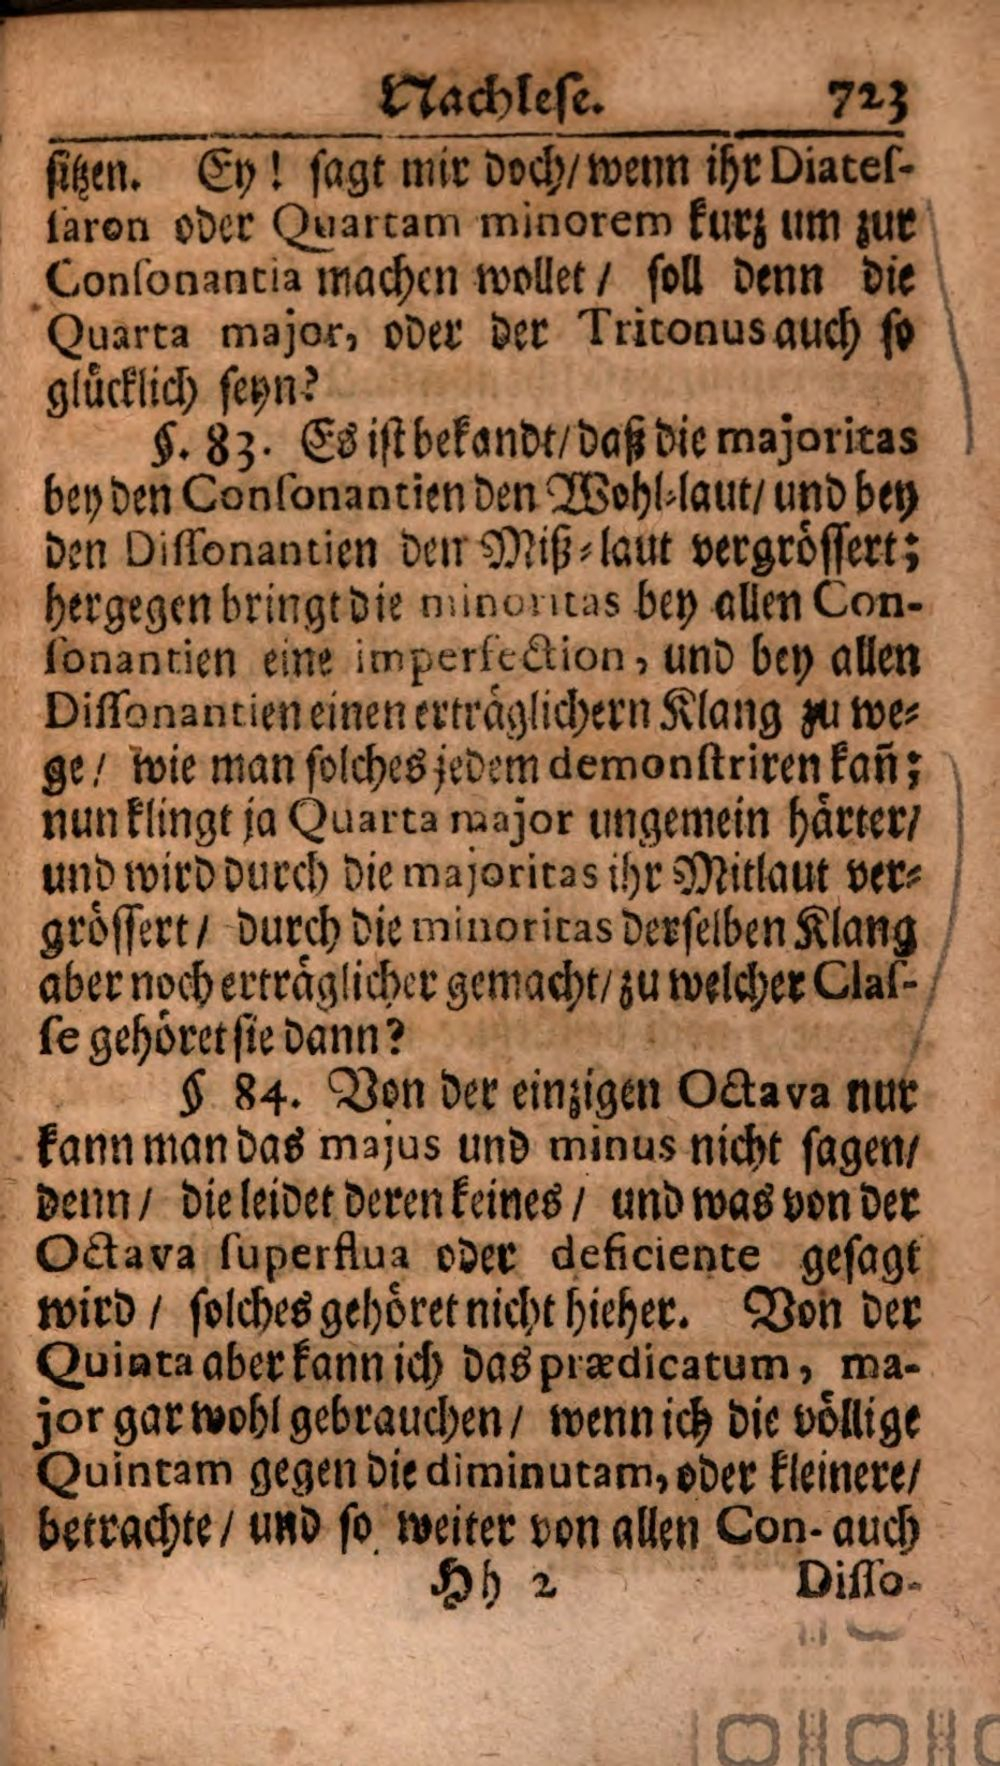 Nachleſe. 723
ſitzen. Ey! ſagt mir doch/ wenn ihr Diateſ-
ſaron oder Quartam minorem kurz um zur
Conſonantia machen wollet / ſoll denn die
Quarta major, oder der Tritonus auch ſo
glücklich ſeyn?
§. 83. Es iſt bekandt/ daß die majoritas
bey den Conſonantien den Wohl-laut/ und bey
den Diſſonantien den Miß-laut vergröſſert;
hergegen bringt die minoritas bey allen Con-
ſonantien eine imperfection, und bey allen
Diſſonantien einen erträglichern Klang zu we-
ge/ wie man ſolches jedem demonſtriren kañ;
nun klingt ja Quarta major ungemein härter/
und wird durch die majoritas ihr Mitlaut ver-
gröſſert / durch die minoritas derſelben Klang
aber noch erträglicher gemacht/ zu welcher Claſ-
ſe gehöret ſie dann?
§ 84. Von der einzigen Octava nur
kann man das majus und minus nicht ſagen/
denn / die leidet deren keines / und was von der
Octava ſuperflua oder deficiente geſagt
wird / ſolches gehöret nicht hieher. Von der
Quinta aber kann ich das prædicatum, ma-
jor gar wohl gebrauchen / wenn ich die völlige
Quintam gegen die diminutam, oder kleinere/
betrachte / und ſo weiter von allen Con- auch
Hh 2 Diſſo-